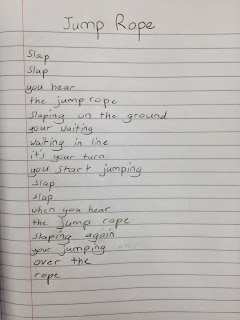 Jump Rope
Slap
Slap
you hear
the jump rope
Slaping on the ground
your waiting
waiting in line
it's your turn
you start jumping
Slap
slap
when you hear
the jump rope
slaping again
your jumping
over the
rope